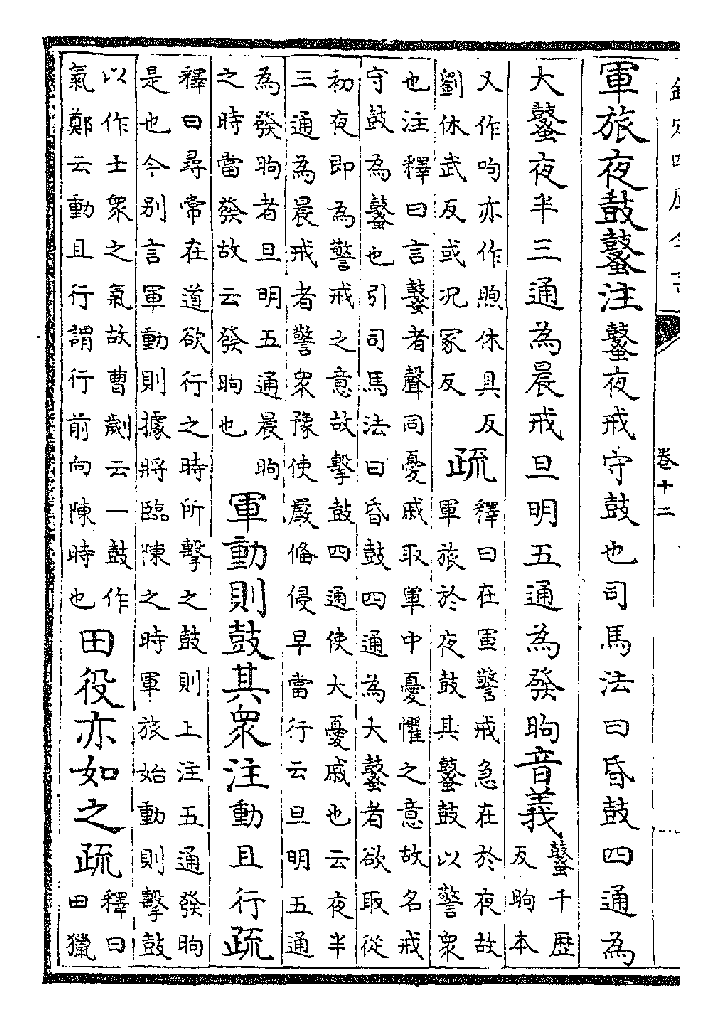 欽定四庫全書
卷十二
軍旅夜鼓鼜注鼜夜戒守鼓也司馬法曰昏鼓四通為
大鼜夜半三通為晨戒旦明五通為發昫音義鼜千歴
反昫本
又作呴亦作煦休具反
劉休武反或况冢反
疏釋曰在軍警戒急在於夜故
軍旅於夜鼓其鼜鼓以警衆
也注釋曰言鼜者聲同憂戚取軍中憂懼之意故名戒
守鼓為鼜也引司馬法曰昏鼓四通為大鼜者欲取從
初夜即為警戒之意故擊鼓四通使大憂戚也云夜半
三通為晨戒者警衆豫使嚴偹侵早當行云旦明五通
為發昫者旦明五通晨昫
之時當發故云發昫也
軍動則鼓其衆注動且行疏
釋曰尋常在道欲行之時所擊之鼓則上注五通發昫
是也今別言軍動則據將臨陳之時軍旅始動則擊鼓
以作士衆之氣故曹劌云一鼓作
氣鄭云動且行謂行前向陳時也
田役亦如之疏釋曰
田獵